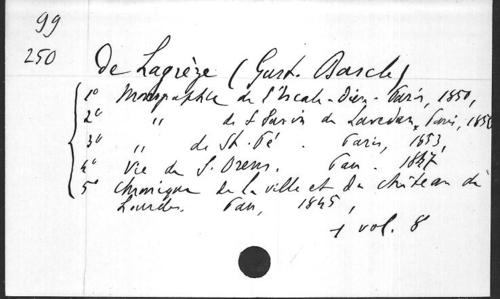 99
250
de Lagrèze (Gust. Bascle)
1° Monographie de l'Escale-Dieu. Paris, 1850,
2° " de S. Savin de Lavedan, Paris, 1850
3° " de St. Pé. Paris, 1853,
4° Vie de S. Orens. Pau. 1847
5° Chronique de la ville et du château de
Lourdes. Pau, 1845,
1 vol. 8